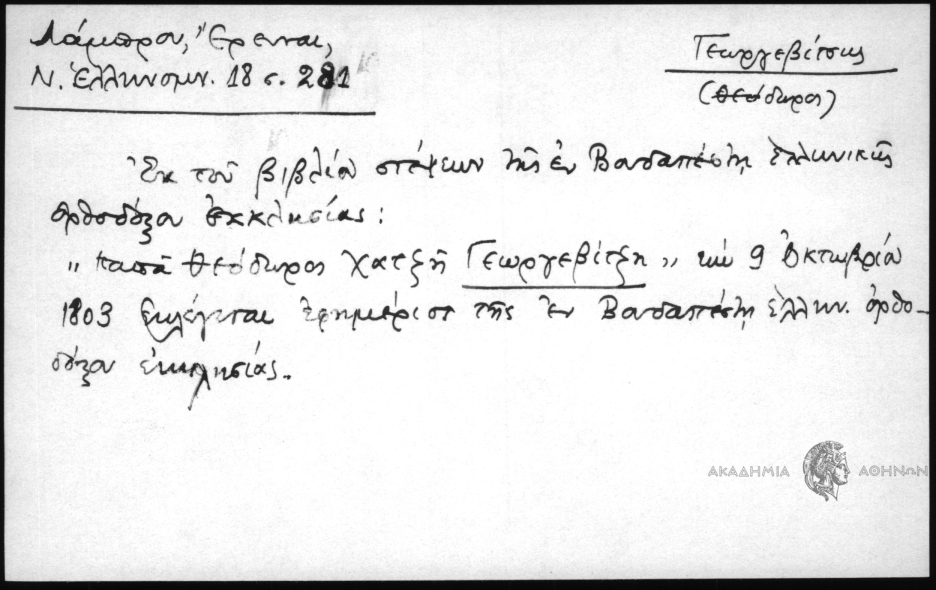 Λάμπρου, Ἔρευναι,
Ν. Ἑλληνομν. 18 σ. 281
Γεωργεβίτσης
(Θεόδωρος)
Ἐκ τοῦ βιβλίου στέψεων τῆς ἐν Βουδαπέστῃ Ἑλληνικῆς
ὀρθοδόξου ἐκκλησίας:
„ παπᾶ Θεόδωρος Χατζῆ Γεωργεβίτζη „ τῇ 9 Ὀκτωβρίου
1803 ἐκλέγεται ἐφημέριος τῆς ἐν Βουδαπέστῃ ἑλλην. ὀρθο-
δόξου ἐκκλησίας.
ΑΚΑΔΗΜΙΑ ΑΘΗΝΩΝ